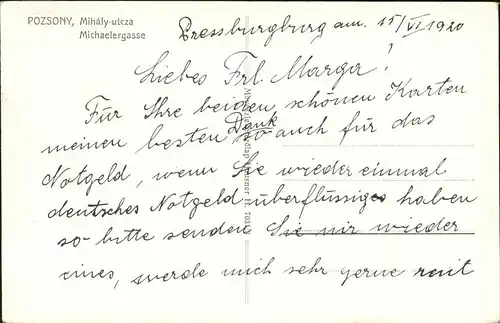 POZSONY, Mihály-utcza
Michaelergasse
Pressburgburg am. 15/VI 1920
Liebes Frl. Marga!
Für Ihre beiden schönen Karten
meinen besten Dank so auch für das
Notgeld, wenn Sie wieder einmal
deutsches Notgeld überflüssiges haben
so bitte senden Sie mir wieder
eines, werde mich sehr gerne mit